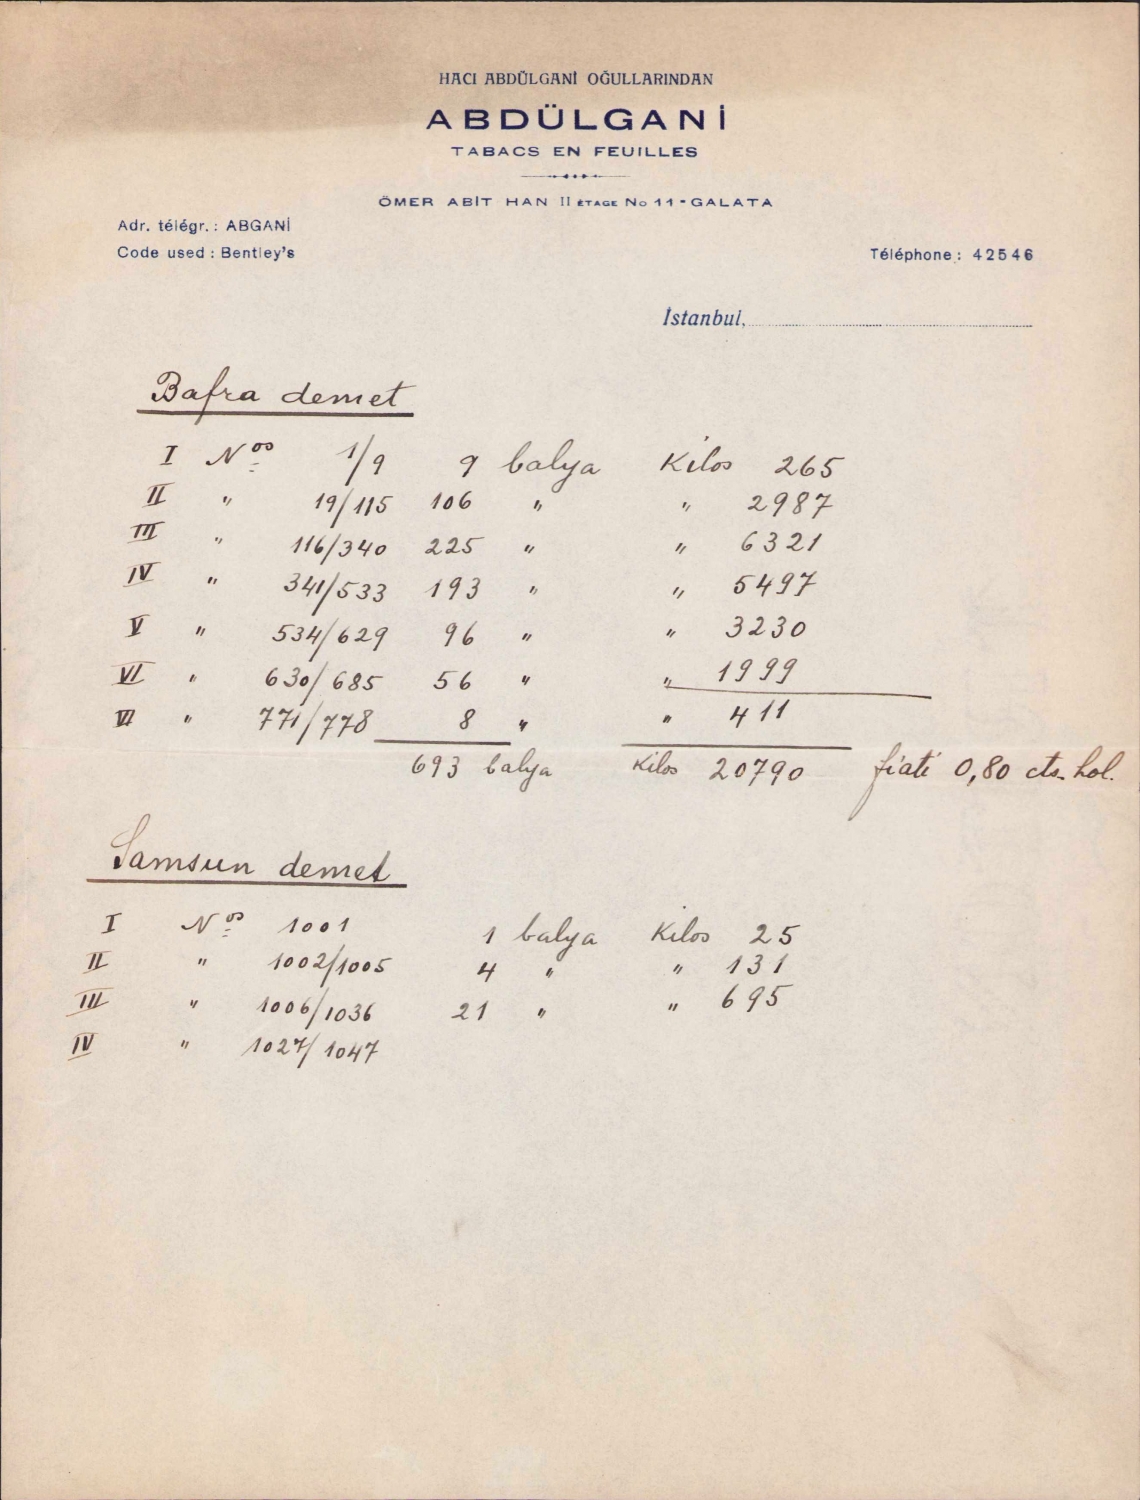 HACI ABDÜLGANİ OĞULLARINDAN
ABDÜLGANİ
TABACS EN FEUILLES
ÖMER ABİT HAN II ÉTAGE No 11-GALATA
Adr. télégr.: ABGANİ
Code used : Bentley's
Téléphone: 42546
İstanbul,
Bafra demet
I Nos 1/9 9 balya Kilos 265
II " 19/115 106 " " 2987
III " 116/340 225 " " 6321
IV " 341/533 193 " " 5497
V " 534/629 96 " " 3230
VI " 630/685 56 " " 1999
VI " 771/778 8 " " 411
693 balya Kilos 20790 fiati 0,80 cts. hol.
Samsun demet
I Nos 1001 1 balya Kilos 25
II " 1002/1005 4 " " 131
III " 1006/1036 21 " " 695
IV " 1027/1047